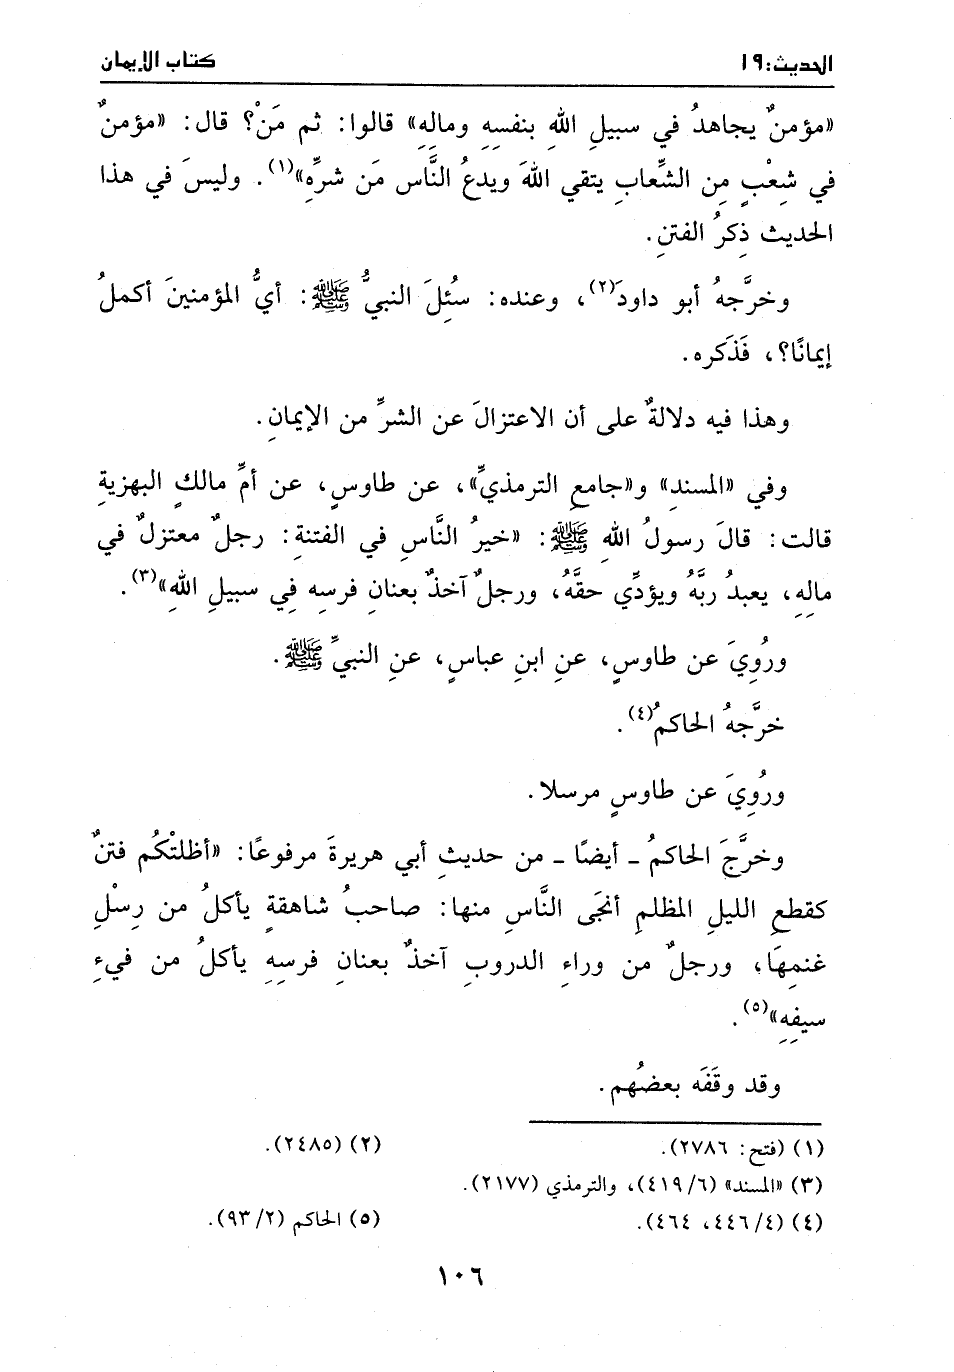 الحديث: ١٩
كتاب الإيمان
«مؤمنٌ يجاهدُ في سبيلِ اللهِ بنفسِهِ ومالِهِ» قالوا: ثم مَنْ؟ قال: «مؤمنٌ
في شعْبٍ مِن الشِّعابِ يتقي اللهَ ويدعُ النَّاس مَن شرِّهِ»(١). وليسَ في هذا
الحديث ذِكرُ الفتنِ.
وخرَّجهُ أبو داودَ(٢)، وعنده: سُئلَ النبيُّ ﷺ: أيُّ المؤمنينَ أكملُ
إيمانًا؟، فَذَكره.
وهذا فيه دلالةٌ على أن الاعتزالَ عن الشرِّ من الإيمانِ.
وفي «المسندِ» و«جامعِ الترمذيِّ»، عن طاوسٍ، عن أمِّ مالكٍ البهزيةِ
قالت: قالَ رسولُ اللهِ ﷺ: «خيرُ النَّاسِ في الفتنةِ: رجلٌ معتزلٌ في
مالِهِ، يعبدُ ربَّهُ ويؤدِّي حقَّهُ، ورجلٌ آخذٌ بعنانِ فرسِه فِي سبيلِ اللهِ»(٣).
ورُوِيَ عن طاوسٍ، عنِ ابنِ عباسٍ، عنِ النبيِّ ﷺ.
خرَّجهُ الحاكمُ(٤).
ورُوِيَ عن طاوسٍ مرسلا.
وخرَّجَ الحاكمُ ـ أيضًا ـ من حديثِ أبي هريرةَ مرفوعًا: «أظلتْكُم فتنٌ
كقطعِ الليلِ المظلمِ أنجَى النَّاسِ منها: صاحبُ شاهقةٍ يأكلُ من رِسْلِ
غنمِهَا، ورجلٌ من وراءِ الدروبِ آخذٌ بعنانِ فرسِهِ يأكلُ من فيءِ
سيفِهِ»(٥).
وقد وقَفَه بعضُهم.
(١) (فتح: ٢٧٨٦).
(٢) (٢٤٨٥).
(٣) «المسند» (٤١٩/٦)، والترمذي (٢١٧٧).
(٤) (٤٤٦/٤، ٤٦٤).
(٥) الحاكم (٩٣/٢).
١٠٦